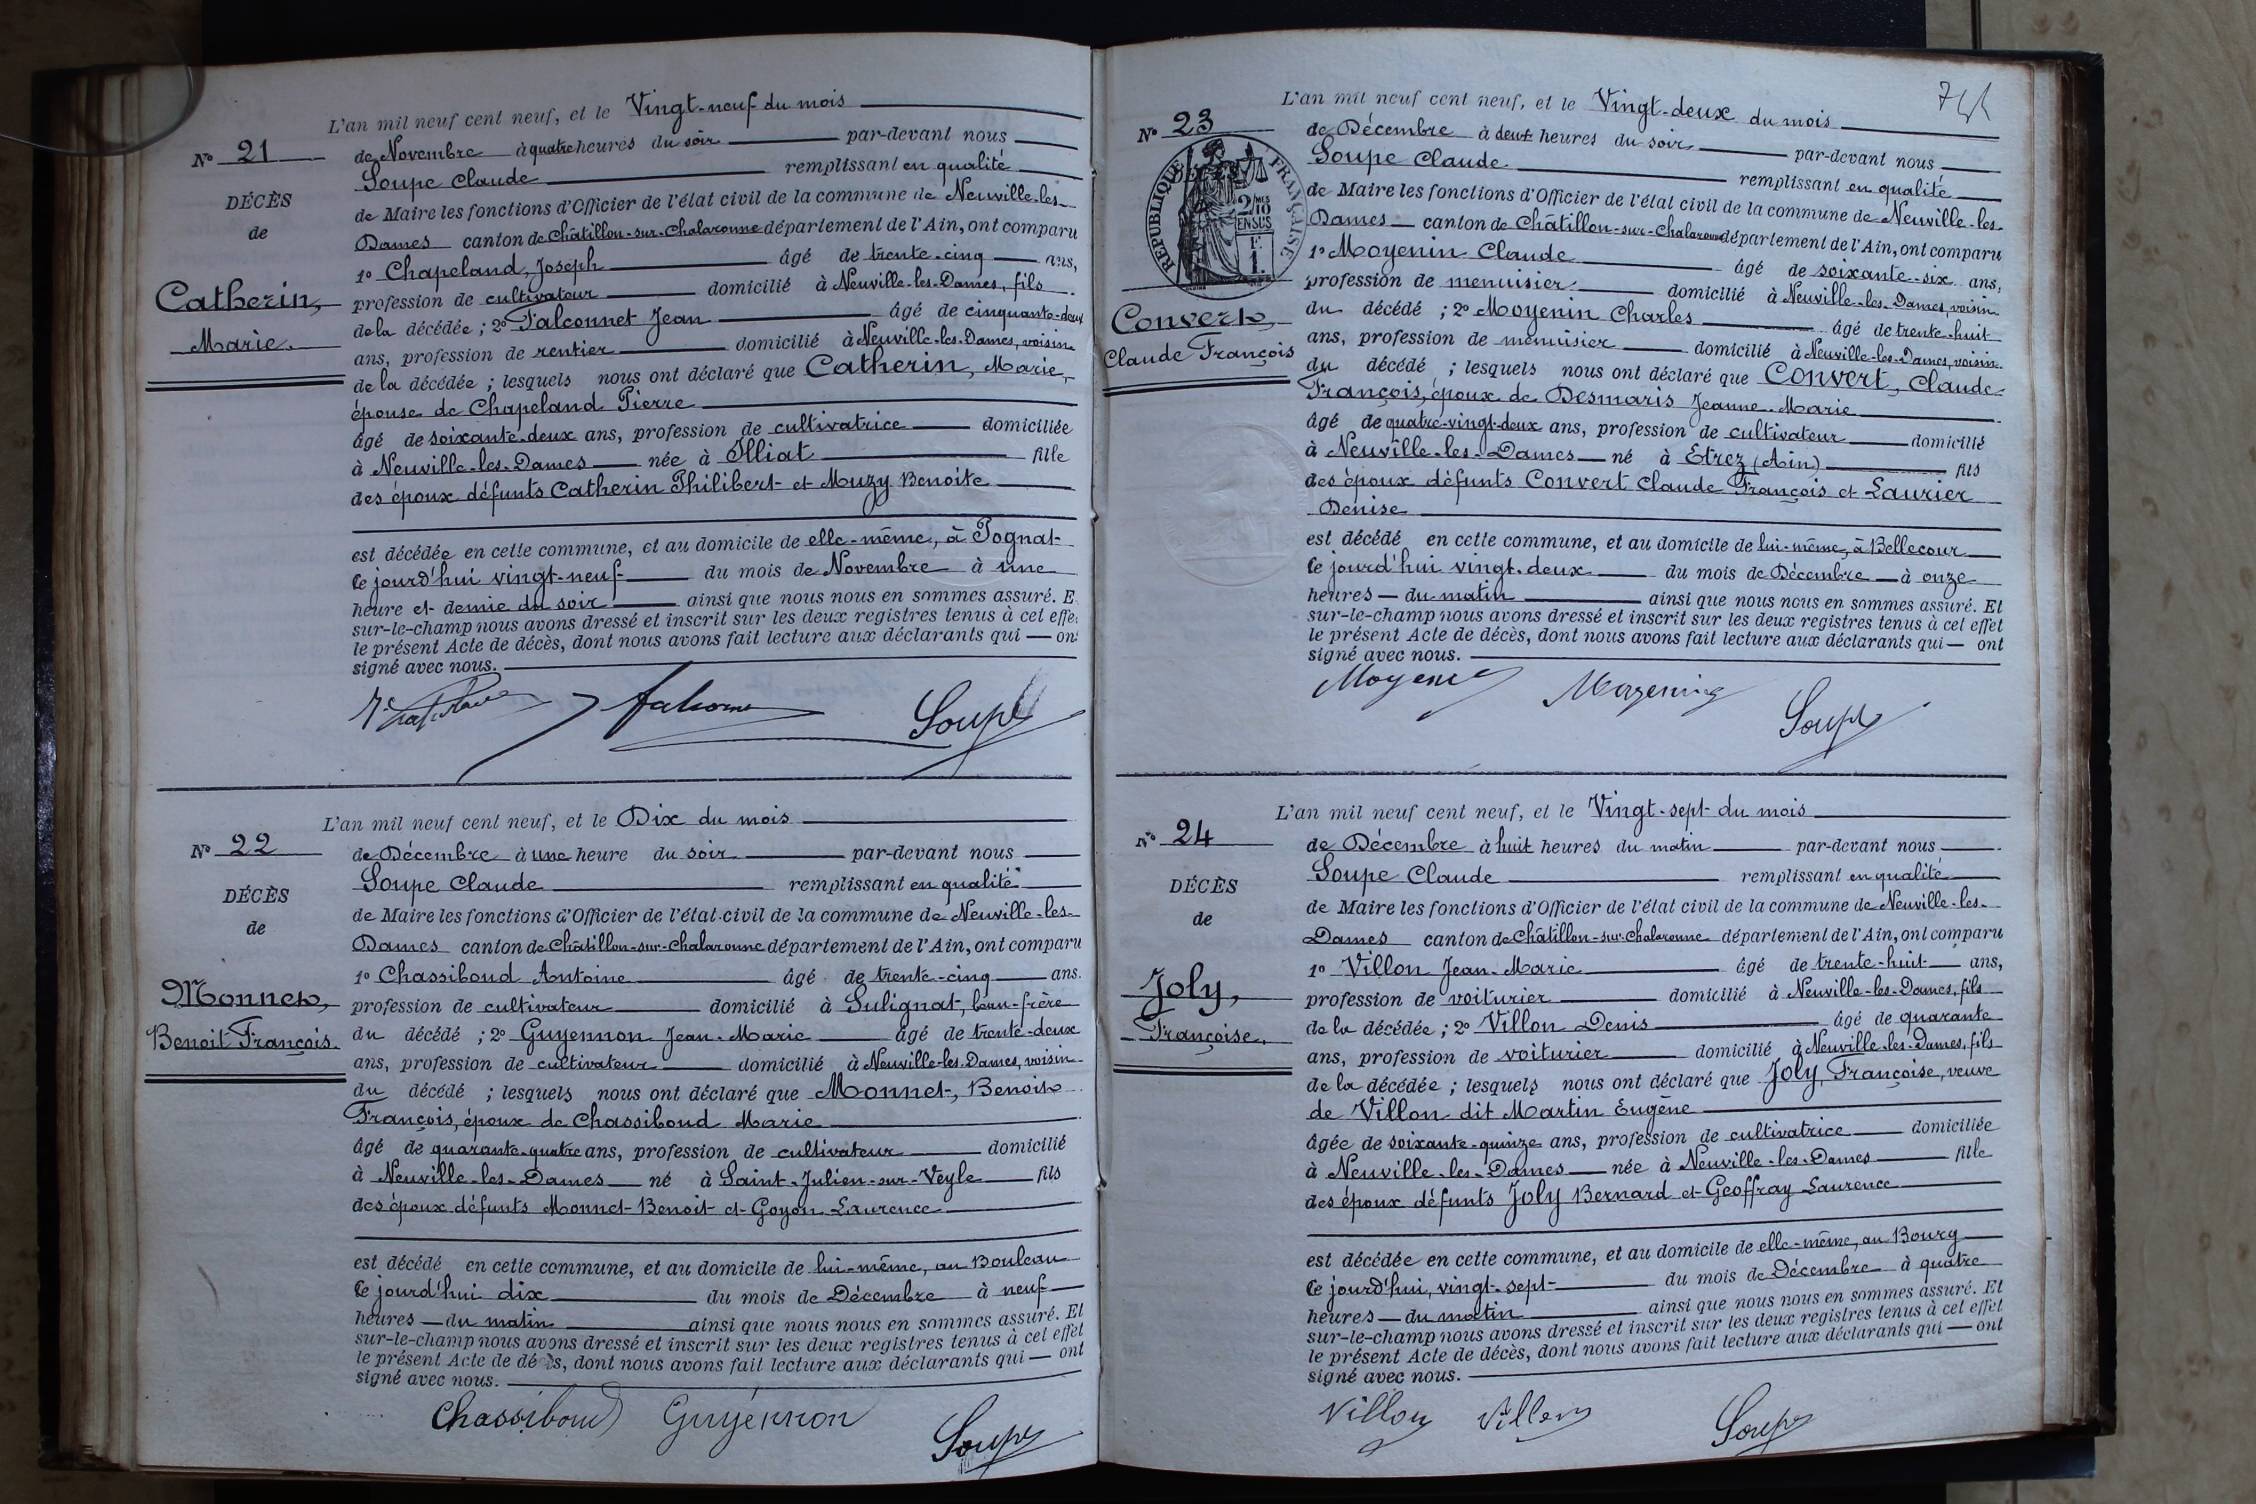 L'an mil neuf cent neuf, et le Vingt-neuf du mois
N° 21
de Novembre à quatre heures du soir par-devant nous
DÉCÈS
Soupe Claude remplissant en qualité
de
de Maire les fonctions d'Officier de l'état civil de la commune de Neuville-les-
Dames canton de Châtillon-sur-Chalaronne département de l'Ain, ont comparu
1° Chapeland, Joseph âgé de trente-cinq ans,
Catherin,
profession de cultivateur domicilié à Neuville-les-Dames, fils
Marie.
de la décédée ; 2° Falconnet Jean âgé de cinquante-deux
ans, profession de rentier domicilié à Neuville-les-Dames, voisin
de la décédée ; lesquels nous ont déclaré que Catherin, Marie,
épouse de Chapeland Pierre
âgé de soixante-deux ans, profession de cultivatrice domiciliée
à Neuville-les-Dames née à Illiat fille
des époux défunts Catherin Philibert et Muzy Benoite
est décédée en cette commune, et au domicile de elle-même, à Pognat
ce jourd'hui vingt-neuf du mois de Novembre à une
heure et demie du soir ainsi que nous nous en sommes assuré. E
sur-le-champ nous avons dressé et inscrit sur les deux registres tenus à cet effe
le présent Acte de décès, dont nous avons fait lecture aux déclarants qui — on
signé avec nous.
Soupe
L'an mil neuf cent neuf, et le Dix du mois
N° 22
de Décembre à une heure du soir par-devant nous
DÉCÈS
Soupe Claude remplissant en qualité
de
de Maire les fonctions d'Officier de l'état civil de la commune de Neuville-les-
Dames canton de Châtillon-sur-Chalaronne département de l'Ain, ont comparu
1° Chassiboud Antoine âgé de trente-cinq ans.
Monnet,
profession de cultivateur domicilié à Sulignat, beau-frère
Benoit François.
du décédé ; 2° Guyennon Jean-Marie âgé de trente-deux
ans, profession de cultivateur domicilié à Neuville-les-Dames, voisin
du décédé ; lesquels nous ont déclaré que Monnet, Benoit
François, époux de Chassiboud Marie
âgé de quarante-quatre ans, profession de cultivateur domicilié
à Neuville-les-Dames né à Saint-Julien-sur-Veyle fils
des époux défunts Monnet Benoit et Goyon Laurence
est décédé en cette commune, et au domicile de lui-même, au Bouleau
ce jourd'hui dix du mois de Décembre à neuf
heures — du matin ainsi que nous nous en sommes assuré. Et
sur-le-champ nous avons dressé et inscrit sur les deux registres tenus à cet effet
le présent Acte de décès, dont nous avons fait lecture aux déclarants qui — ont
signé avec nous.
Chassiboud Guyennon Soupe
L'an mil neuf cent neuf, et le Vingt-deux du mois
N° 23
de Décembre à deux heures du soir par-devant nous
RÉPUBLIQUE FRANÇAISE
2/10 MES EN SUS
Soupe Claude remplissant en qualité
de Maire les fonctions d'Officier de l'état civil de la commune de Neuville-les-
Dames canton de Châtillon-sur-Chalaronne département de l'Ain, ont comparu
1° Moyenin Claude âgé de soixante-six ans,
profession de menuisier domicilié à Neuville-les-Dames, voisin
Convert,
du décédé ; 2° Moyenin Charles âgé de trente-huit
Claude François
ans, profession de menuisier domicilié à Neuville-les-Dames, voisin
du décédé ; lesquels nous ont déclaré que Convert, Claude-
François, époux de Desmaris Jeanne-Marie
âgé de quatre-vingt-deux ans, profession de cultivateur domicilié
à Neuville-les-Dames né à Etrez (Ain) fils
des époux défunts Convert Claude François et Laurier
Denise
est décédé en cette commune, et au domicile de lui-même, à Bellecour
ce jourd'hui vingt-deux du mois de Décembre à onze
heures — du matin ainsi que nous nous en sommes assuré. Et
sur-le-champ nous avons dressé et inscrit sur les deux registres tenus à cet effet
le présent Acte de décès, dont nous avons fait lecture aux déclarants qui — ont
signé avec nous.
Soupe
L'an mil neuf cent neuf, et le Vingt-sept du mois
N° 24
de Décembre à huit heures du matin par-devant nous
DÉCÈS
Soupe Claude remplissant en qualité
de
de Maire les fonctions d'Officier de l'état civil de la commune de Neuville-les-
Dames canton de Châtillon-sur-Chalaronne département de l'Ain, ont comparu
1° Villon Jean-Marie âgé de trente-huit ans,
Joly,
profession de voiturier domicilié à Neuville-les-Dames, fils
Françoise.
de la décédée ; 2° Villon Denis âgé de quarante
ans, profession de voiturier domicilié à Neuville-les-Dames, fils
de la décédée ; lesquels nous ont déclaré que Joly, Françoise, veuve
de Villon dit Martin Eugène
âgée de soixante-quinze ans, profession de cultivatrice domiciliée
à Neuville-les-Dames née à Neuville-les-Dames fille
des époux défunts Joly Bernard et Geoffray Laurence
est décédée en cette commune, et au domicile de elle-même, au Bourg
ce jourd'hui, vingt-sept du mois de Décembre à quatre
heures — du matin ainsi que nous nous en sommes assuré. Et
sur-le-champ nous avons dressé et inscrit sur les deux registres tenus à cet effet
le présent Acte de décès, dont nous avons fait lecture aux déclarants qui — ont
signé avec nous.
Villon Villon Soupe